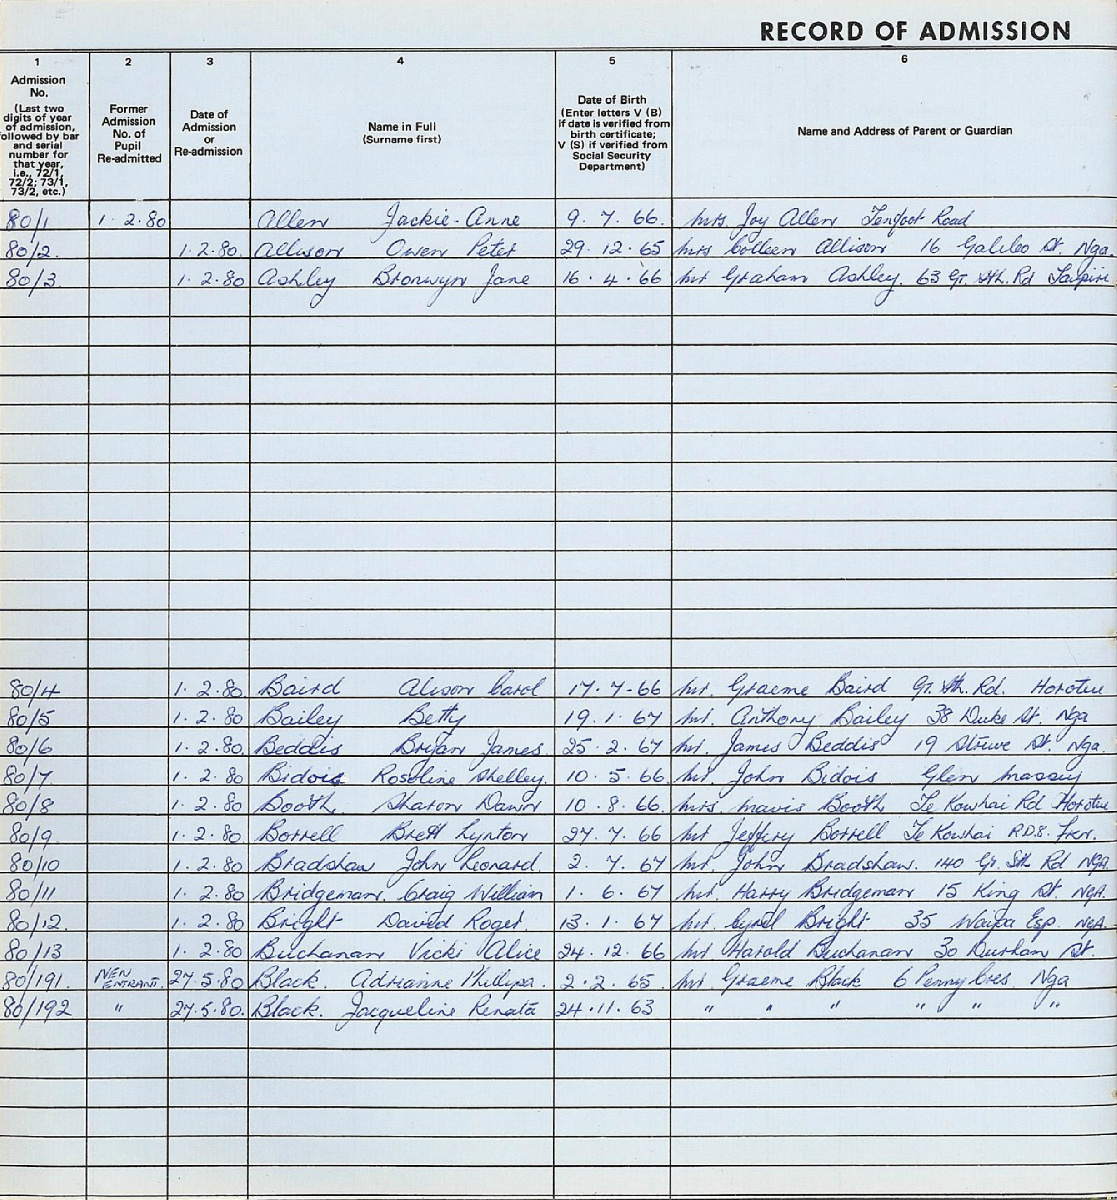 RECORD OF ADMISSION
1 2 3 4 5 6
Admission
No.
(Last two
digits of year
of admission,
followed by bar
and serial
number for
that year,
i.e., 72/1,
72/2; 73/1,
73/2, etc.)
Former
Admission
No. of
Pupil
Re-admitted
Date of
Admission
or
Re-admission
Name in Full
(Surname first)
Date of Birth
(Enter letters V (B)
if date is verified from
birth certificate;
V (S) if verified from
Social Security
Department)
Name and Address of Parent or Guardian
80/1 1.2.80 Allen Jackie-Anne 9.7.66. Mrs. Joy Allen Tenfoot Road
80/2. 1.2.80. Allison Owen Peter 29.12.65 Mrs Colleen Allison 16 Galileo St. Nga.
80/3. 1.2.80 Ashley Bronwyn Jane 16.4.66 Mr Graham Ashley. 63 Gt. Sth. Rd Taupiri
80/4 1.2.80. Baird Alison Carol 17.7.66 Mr. Graeme Baird Gt. Sth. Rd. Horotiu
80/5 1.2.80 Bailey Betty 19.1.67 Mr. Anthony Bailey 38 Duke St. Nga
80/6 1.2.80. Beddis Bryan James. 25.2.67 Mr. James Beddis 19 Struwe St. Nga.
80/7 1.2.80 Bidois Roseline Shelley. 10.5.66. Mr. John Bidois Glen Massey
80/8 1.2.80 Booth. Sharon Dawn 10.8.66. Mrs. Mavis Booth Te Kowhai Rd Horotiu
80/9 1.2.80. Borrell Brett Lynton 27.7.66 Mr Jeffery Borrell Te Kowhai R.D.8.
80/10 1.2.80. Bradshaw John Leonard. 2.7.67 Mr. John Bradshaw. 140 Gt. Sth Rd Nga
80/11 1.2.80. Bridgeman. Craig William 1.6.67 Mr. Harry Bridgeman 15 King St. NgA.
80/12. 1.2.80. Bright David Roger. 13.1.67 Mr. Cyril Bright 35 Waipa Esp. NgA.
80/13 1.2.80 Buchanan Vicki Alice 24.12.66 Mr Harold Buchanan 30 Durham St.
80/191. NEW ENTRANT. 27.5.80 Black. Adrianne Phillipa. 2.2.65. Mr. Graeme Black 6 Penny Cres. Nga
80/192 " 27.5.80. Black. Jacqueline Renata 24.11.63 " " " " " "